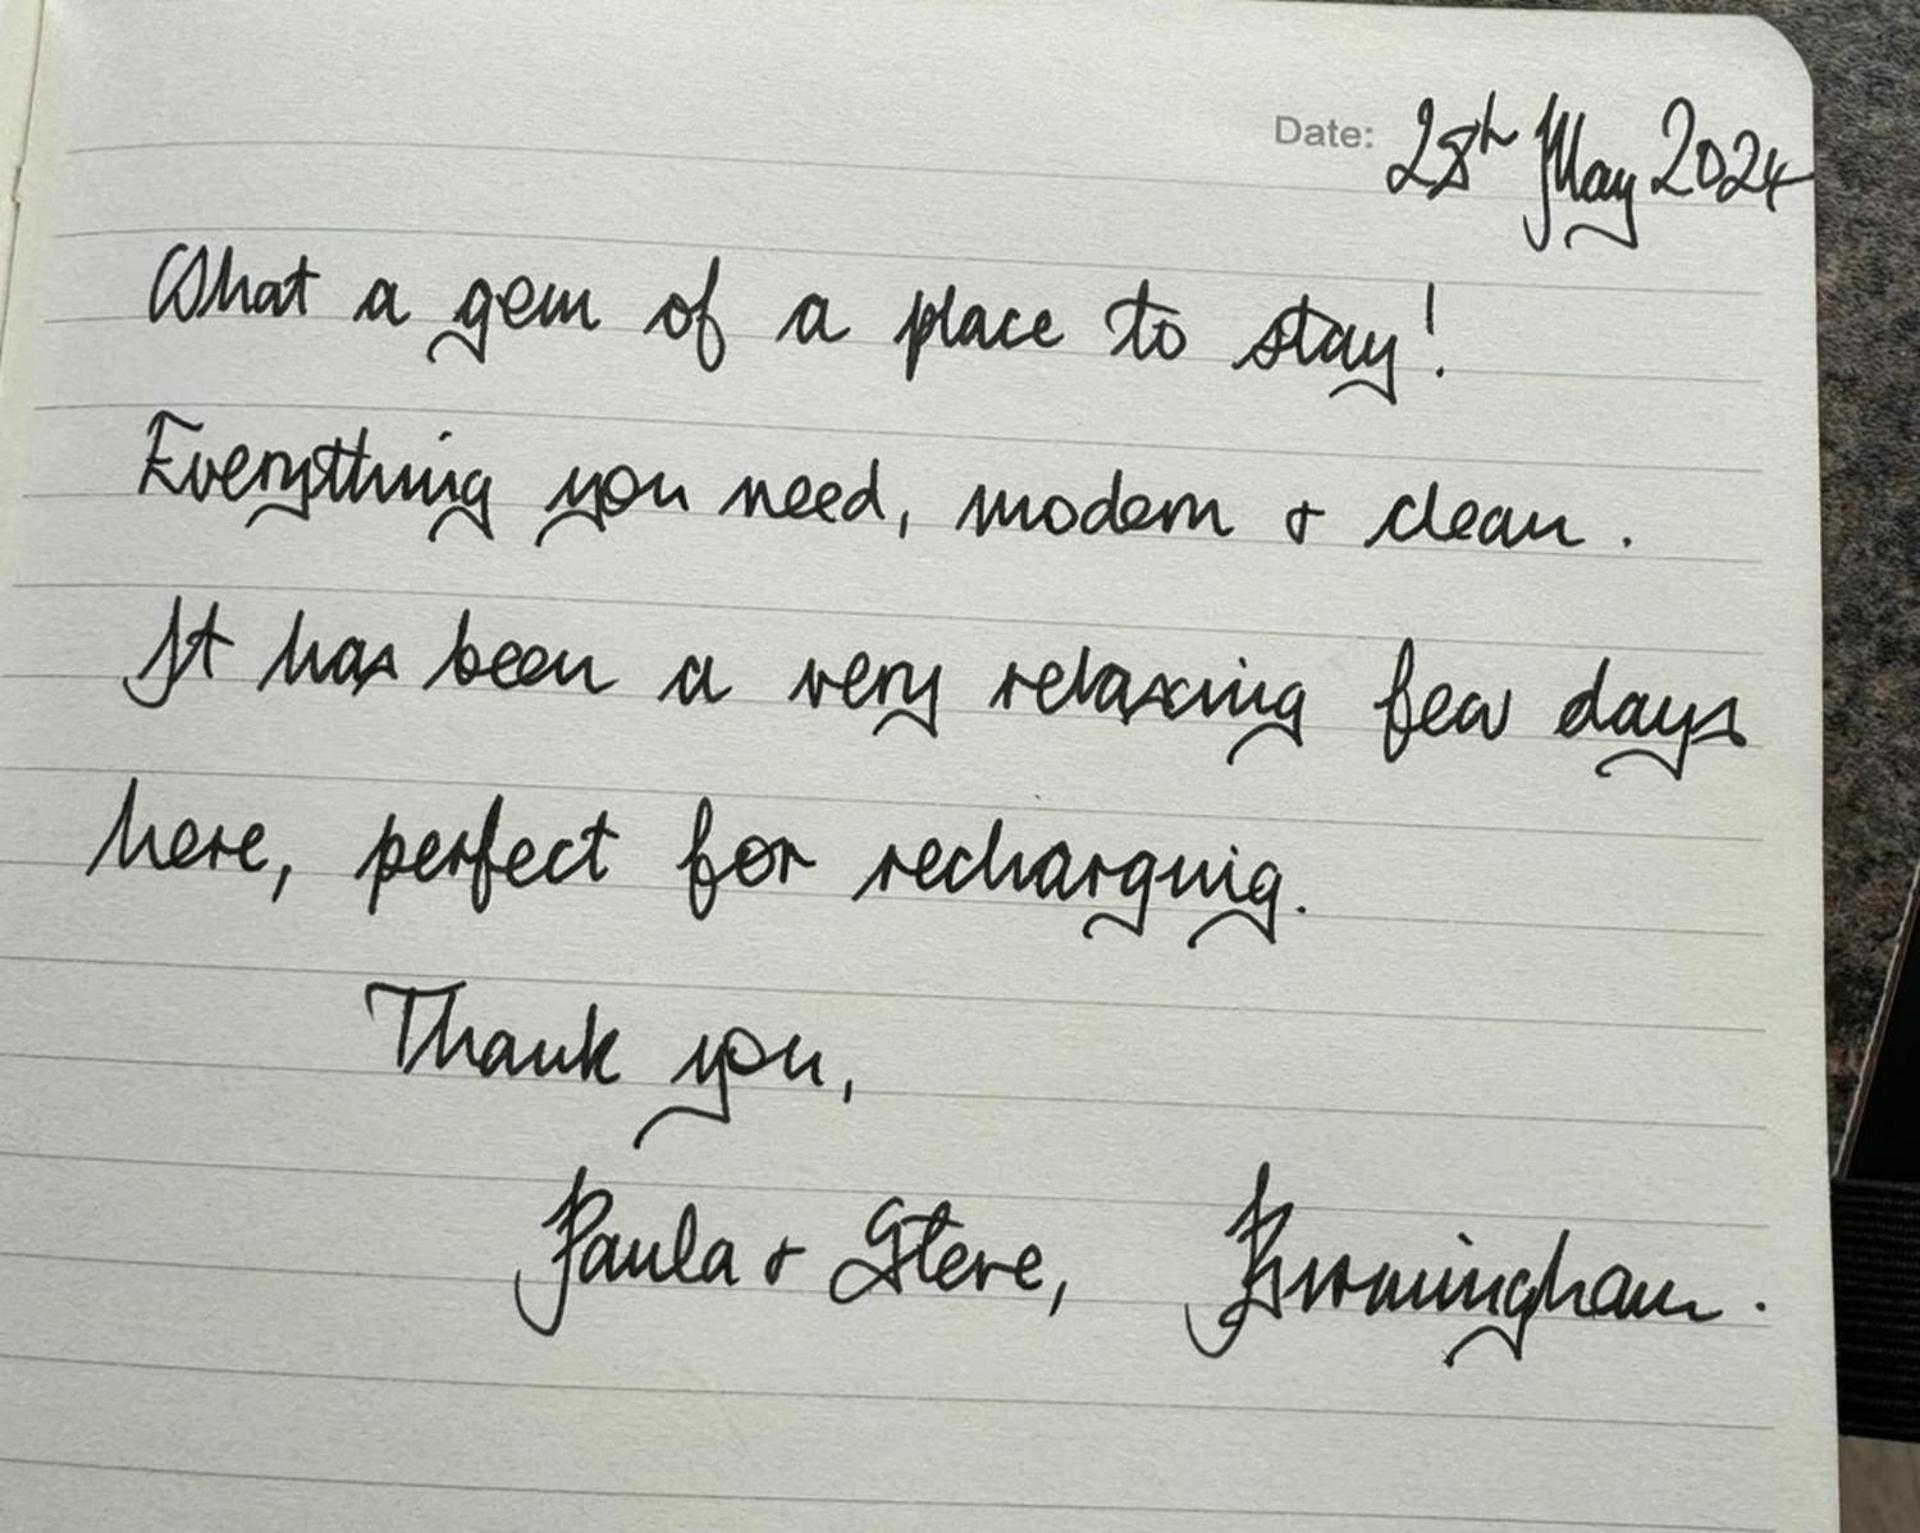 Date: 28th May 2024
What a gem of a place to stay!
Everything you need, modern + clean.
It has been a very relaxing few days
here, perfect for recharging.
Thank you,
Paula + Steve, Birmingham.